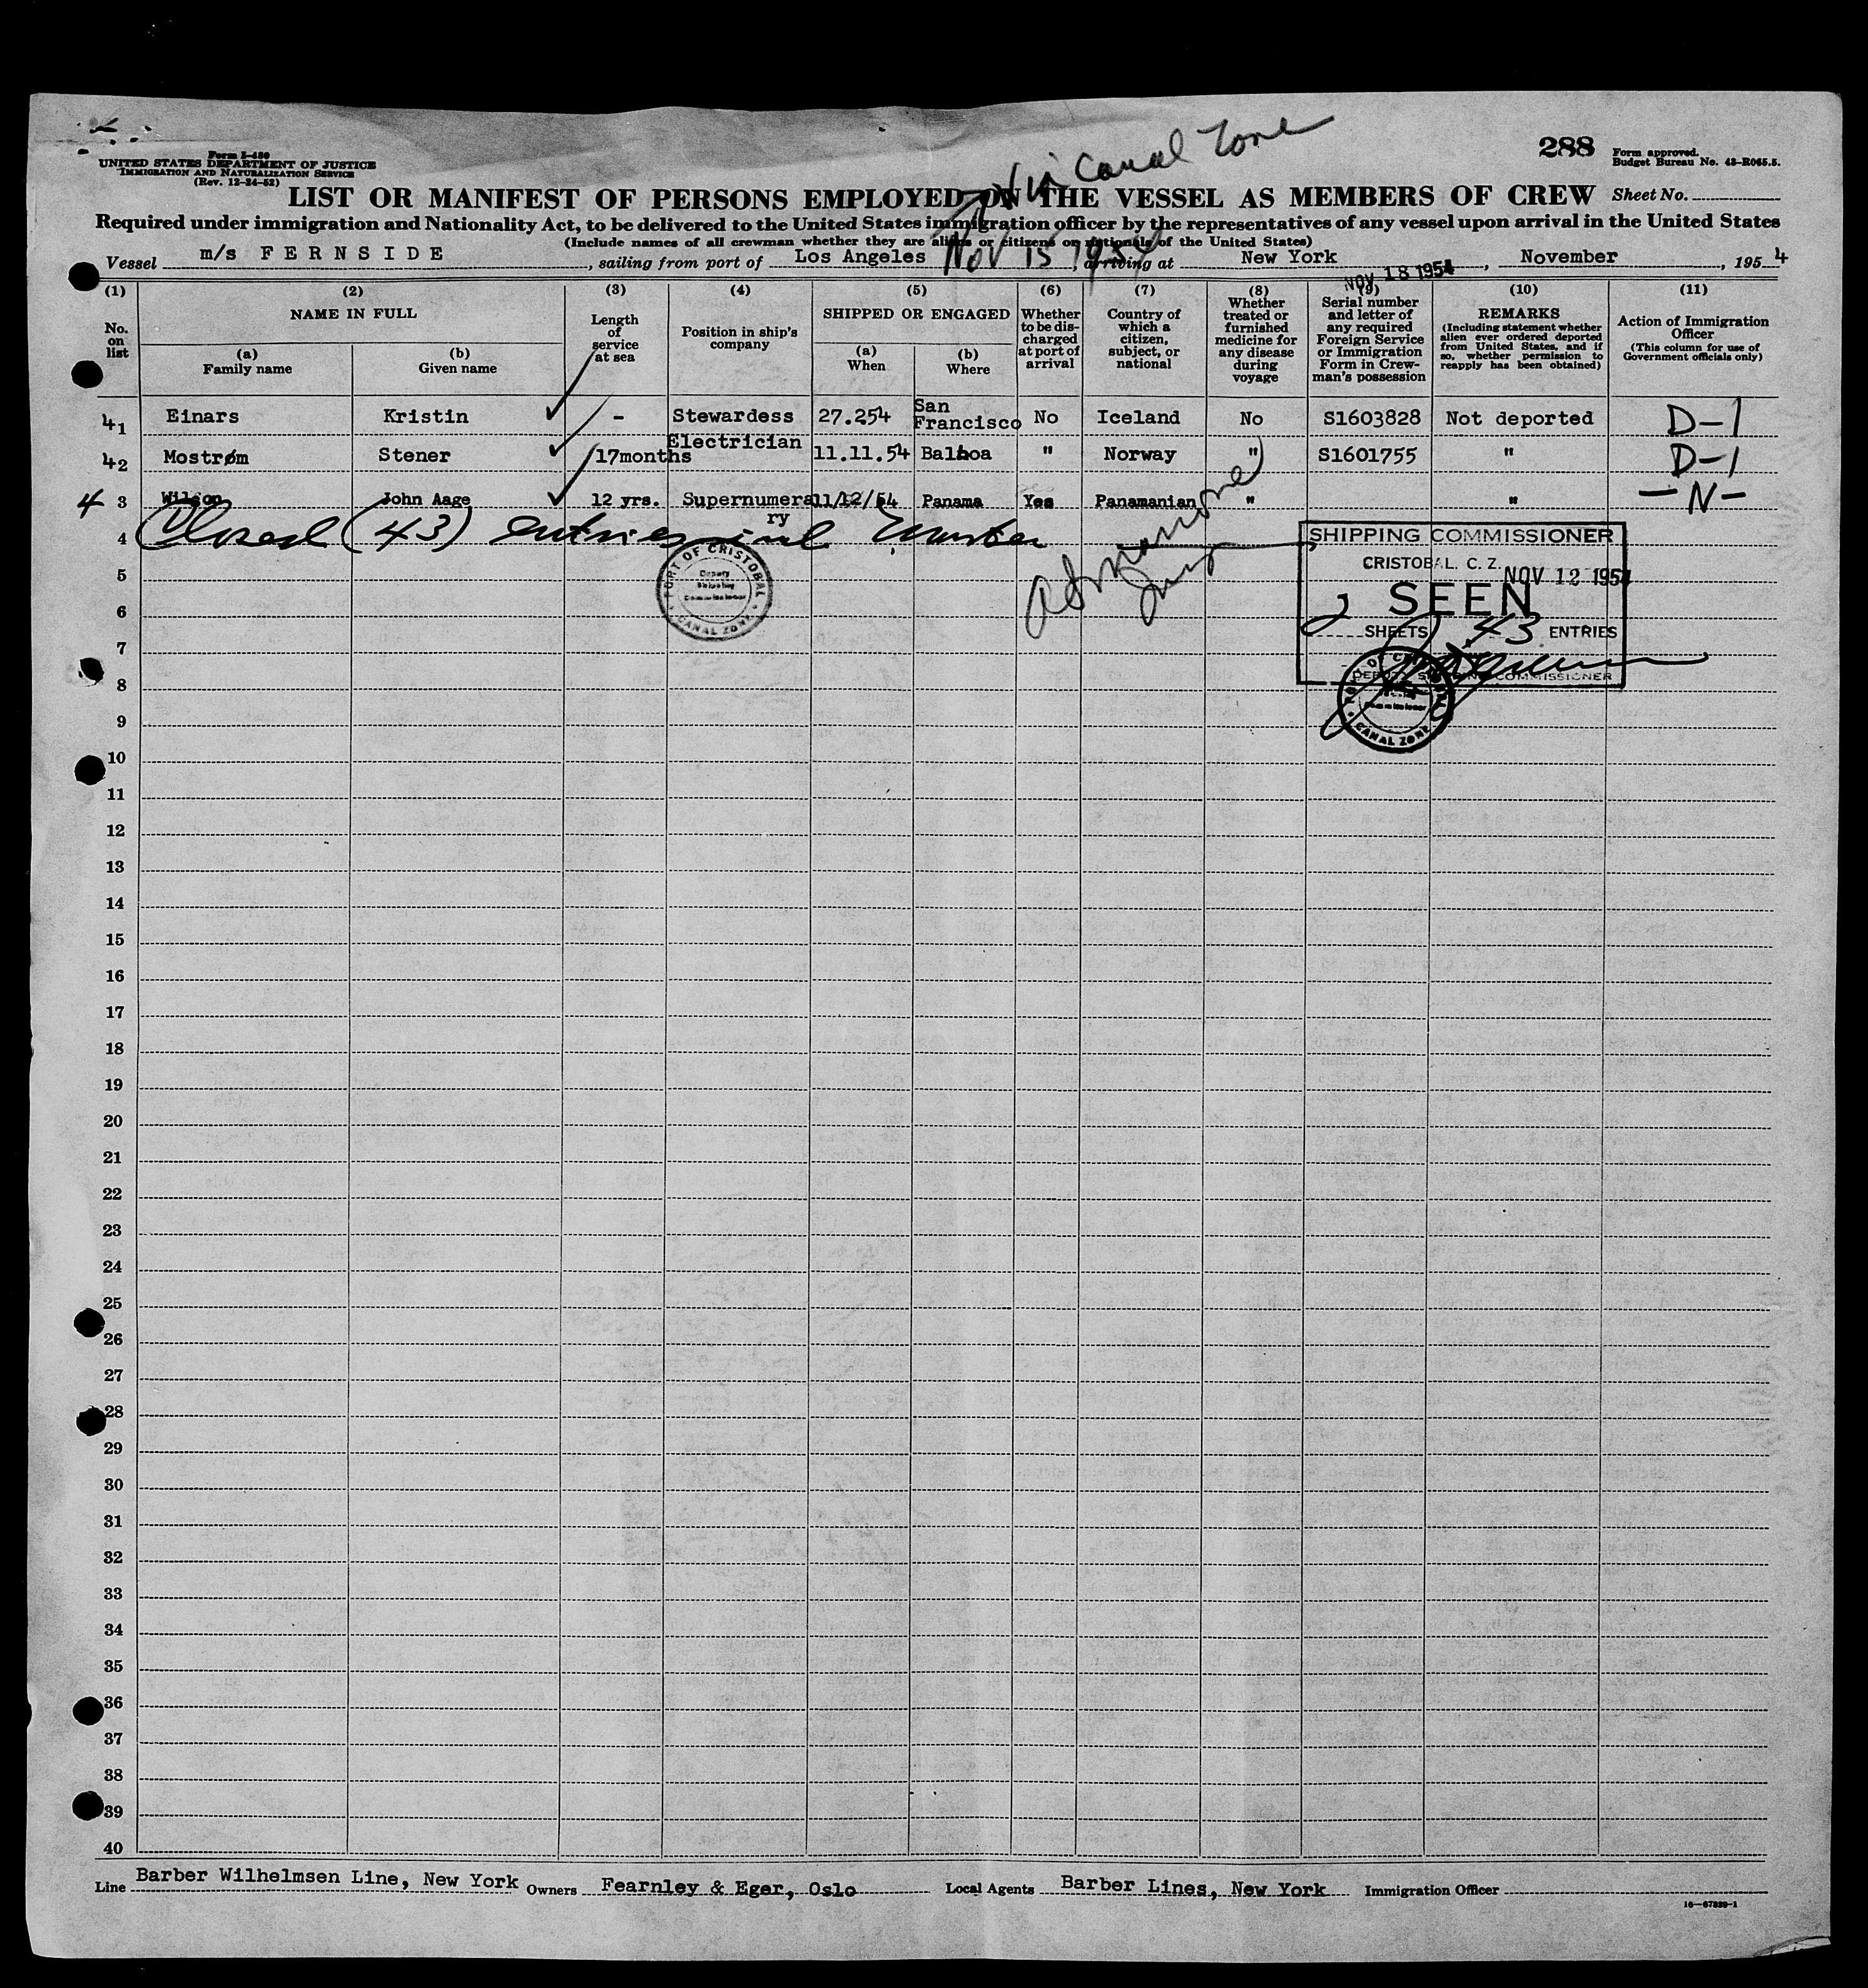 Via Canal Zone
288
Form approved.
Budget Bureau No. 43-R065.5.
Form I-480
UNITED STATES DEPARTMENT OF JUSTICE
IMMIGRATION AND NATURALIZATION SERVICE
(Rev. 12-24-52)
LIST OR MANIFEST OF PERSONS EMPLOYED ON THE VESSEL AS MEMBERS OF CREW Sheet No.
Required under immigration and Nationality Act, to be delivered to the United States immigration officer by the representatives of any vessel upon arrival in the United States
(Include names of all crewman whether they are aliens or citizens or nationals of the United States)
Vessel m/s FERNSIDE, sailing from port of Los Angeles Nov 15 1954, arriving at New York, November, 1954
NOV 18 1954
(1) (2) (3) (4) (5) (6) (7) (8) (9) (10) (11)
No. on list
NAME IN FULL
(a) Family name
(b) Given name
Length of service at sea
Position in ship's company
SHIPPED OR ENGAGED
(a) When
(b) Where
Whether to be discharged at port of arrival
Country of which a citizen, subject, or national
Whether treated or furnished medicine for any disease during voyage
Serial number and letter of any required Foreign Service or Immigration Form in Crewman's possession
REMARKS
(Including statement whether alien ever ordered deported from United States, and if so, whether permission to reapply has been obtained)
Action of Immigration Officer
(This column for use of Government officials only)
41 Einars Kristin - Stewardess 27.254 San Francisco No Iceland No S1603828 Not deported D-1
42 Mostrøm Stener 17months Electrician 11.11.54 Balboa " Norway " S1601755 " D-1
43 Wilson John Aage 12 yrs. Supernumerary 11/12/54 Panama Yes Panamanian " " -N-
4 Closed (43) entries incl Master
PORT OF CRISTOBAL
Deputy Shipping Commissioner
CANAL ZONE
SHIPPING COMMISSIONER
CRISTOBAL, C. Z. NOV 12 1954
SEEN
2 SHEETS 43 ENTRIES
DEPUTY SHIPPING COMMISSIONER
PORT OF CRISTOBAL
Commissioner
CANAL ZONE
5
6
7
8
9
10
11
12
13
14
15
16
17
18
19
20
21
22
23
24
25
26
27
28
29
30
31
32
33
34
35
36
37
38
39
40
Line Barber Wilhelmsen Line, New York Owners Fearnley & Eger, Oslo Local Agents Barber Lines, New York Immigration Officer
16—67829-1